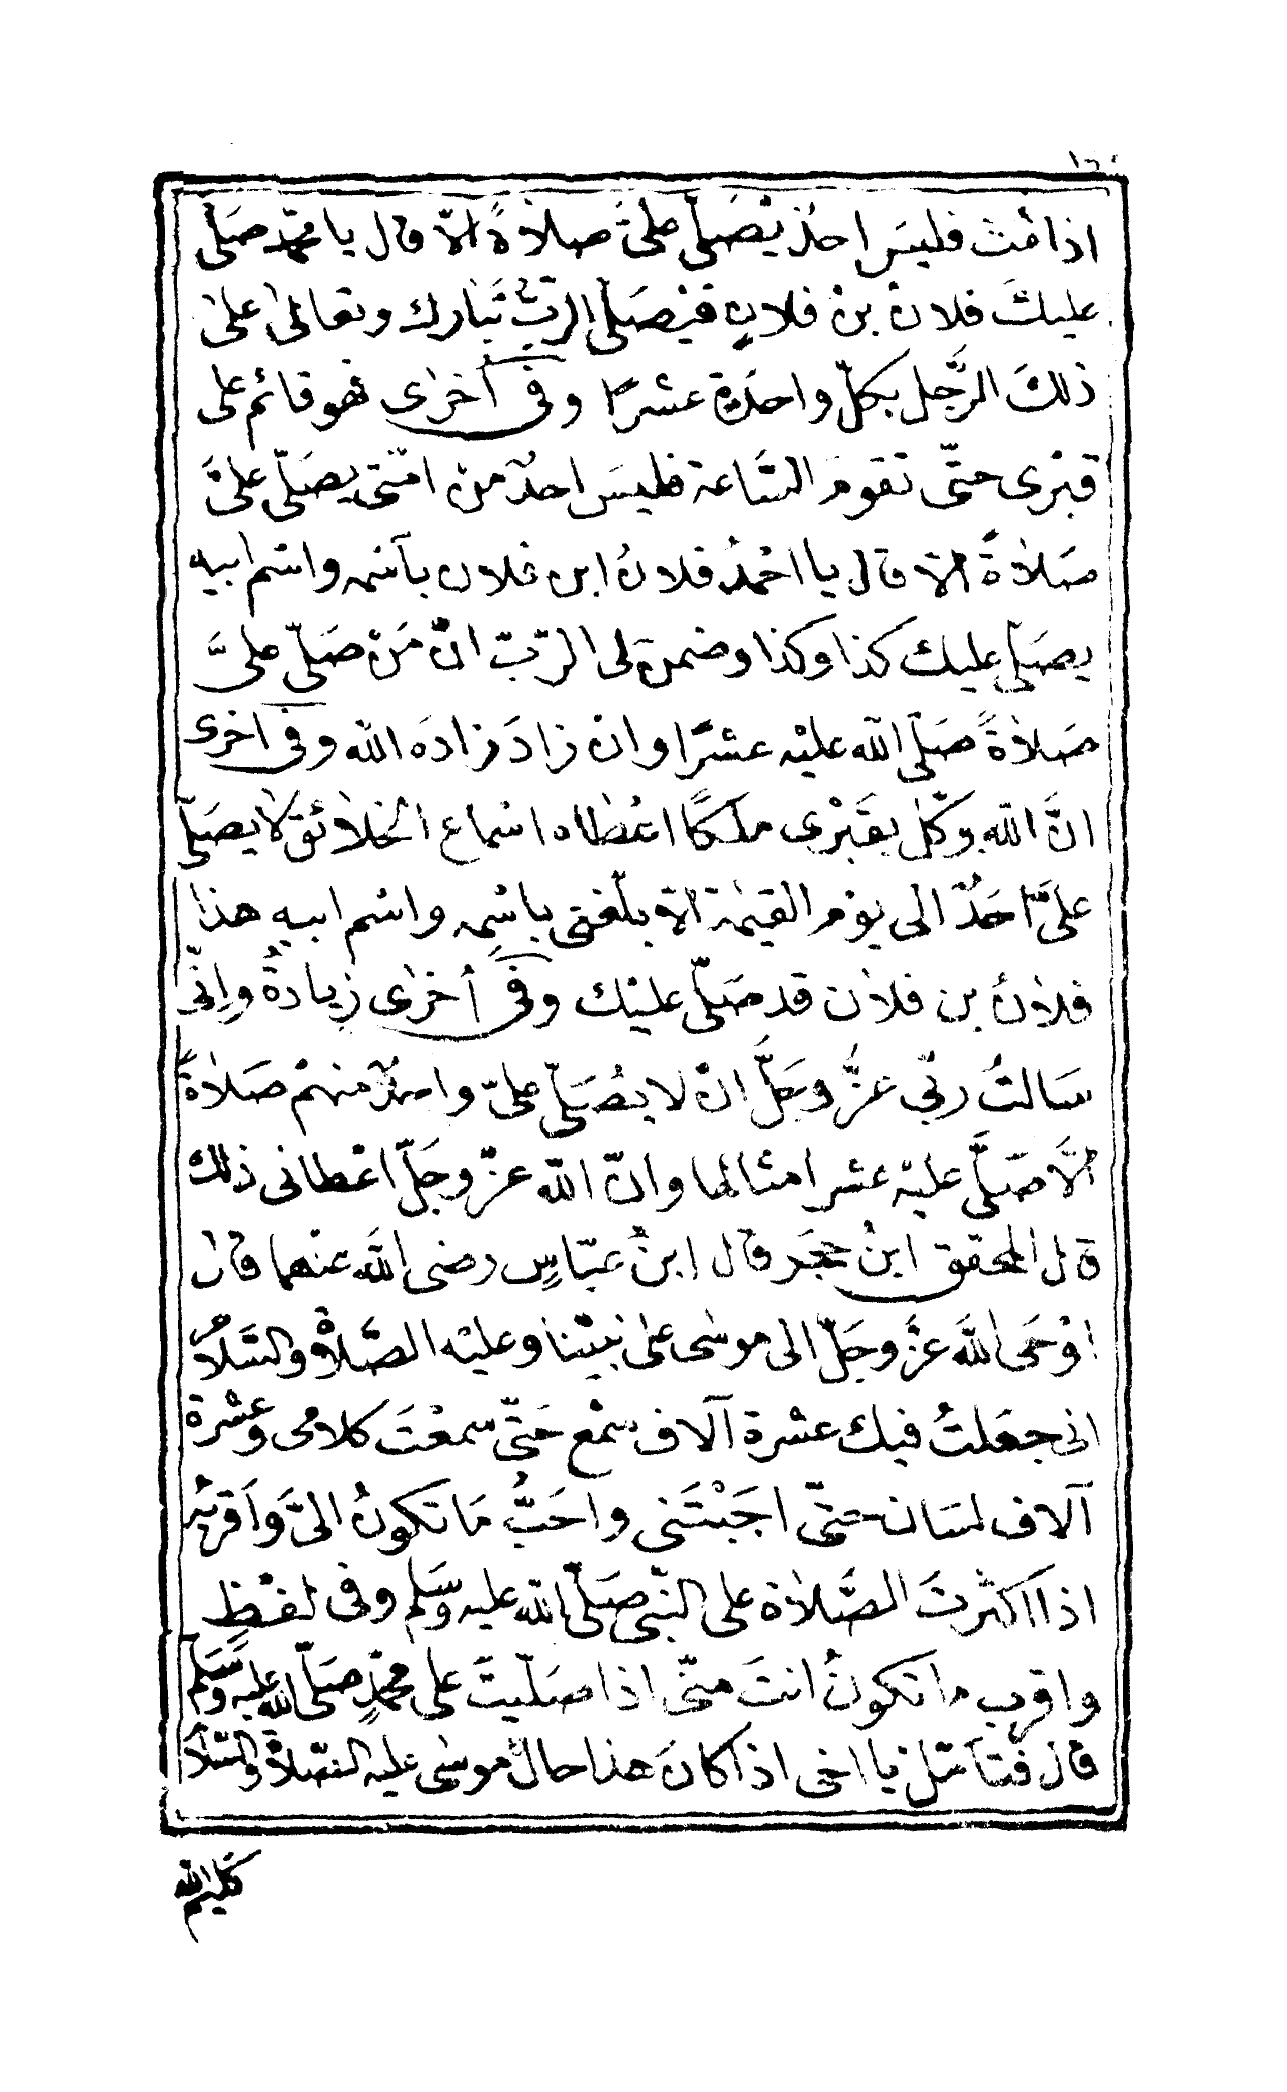 اذا مُتّ فليسَ احدٌ يُصَلّى علىَّ صلاةً الّا قال يا محمّد صَلّى
عليكَ فلانُ بنُ فلانٍ فيُصَلّى الربُّ تَبارك وتعالىٰ علىٰ
ذلكَ الرَّجل بكلّ واحدَةٍ عشرًا وفى أخرٰى فهو قائم على
قبْرى حتّى تقومَ السَّاعة فليسَ احدٌ منْ امّتى يصَلّى علىَّ
صَلاةً الّا قال يا احْمدُ فلانُ ابن فلان بآسْمه واسْم ابيهِ
يصَلى عليك كذا وكذا وضمنَ لى الرّبّ انّ مَنْ صَلّى علىَّ
صَلاةً صَلّى الله عليْه عشرًا وانْ زادَ زادَه الله وفى اخرى
انَّ الله وكّل بقَبْرى ملَكًا اعْطاه اسْماع الخلائق لا يصَلّى
علىَّ احَدٌ الى يوْم القيٰمة الّا بلّغنى باسْمِه واسْم ابيهِ هذا
فلانُ بن فلان قد صَلّى عليْك وفى أخرٰى زيادةُ وانّى
سَالتُ ربّى عزَّ وجَلَّ انْ لا يُصَلّى علىّ واحدٌ منهمْ صَلاةً
الَّا صَلَّى عليْه عشر امثالها وانّ الله عزّ وجَلّ اعْطانى ذلك
قال المحقق ابنُ حجَر قال ابنُ عبّاسٍ رضى اللهَ عنْهما قال
اوْحَى اللهَ عزَّ وجَلّ الى موسٰى علىٰ نبيّنا وعليْه الصَّلاةُ والسَّلامُ
انى جعَلتُ فيك عشْرة آلاف سمْع حَتّى سمعْتَ كلامى وعشْرة
آلاف لسَان حتّى اجَبْتَنى واحَبُّ مَا تكونُ الىَّ وَاَقربُه
اذا اكثرتَ الصَّلاة على النّبى صَلّى الله عليه وسَلم وفى لفْظِ
واقرب ما تكونُ انتَ منّى اذا صَلّيتَ على محمّدٍ صَلّى الله عليه وسَلم
قال فتأمّل يا اخى اذا كانَ هذا حالُ موسٰى عليه الصّلاة والسّلام
كليم الله